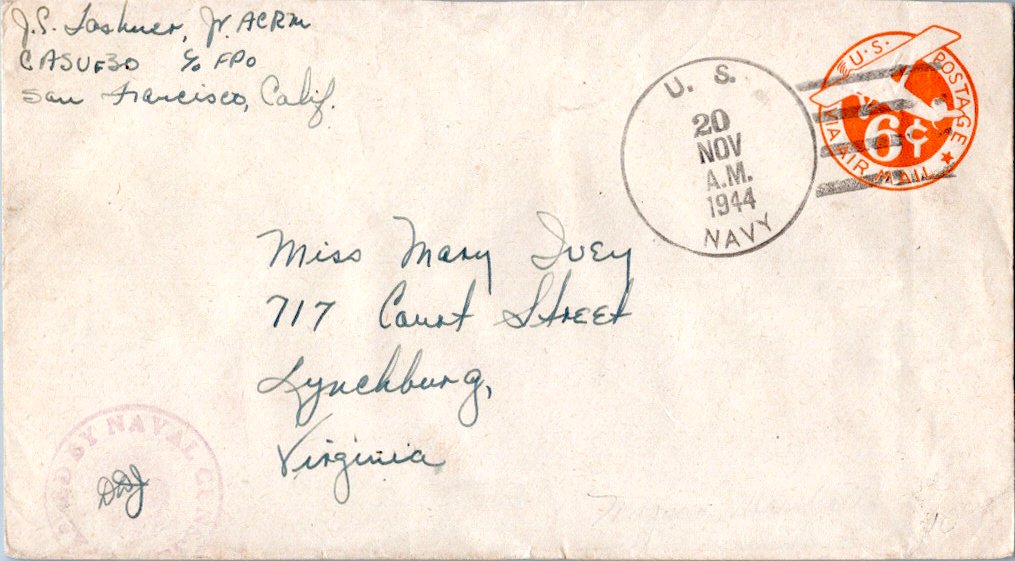 J.S. Lashner, Jr. ACRM
CASUF30 c/o FPO
San Francisco, Calif.
U. S.
20
NOV
A.M.
1944
NAVY
U.S. POSTAGE
6¢
VIA AIR MAIL
Miss Mary Ivey
717 Court Street
Lynchburg,
Virginia
BY NAVAL